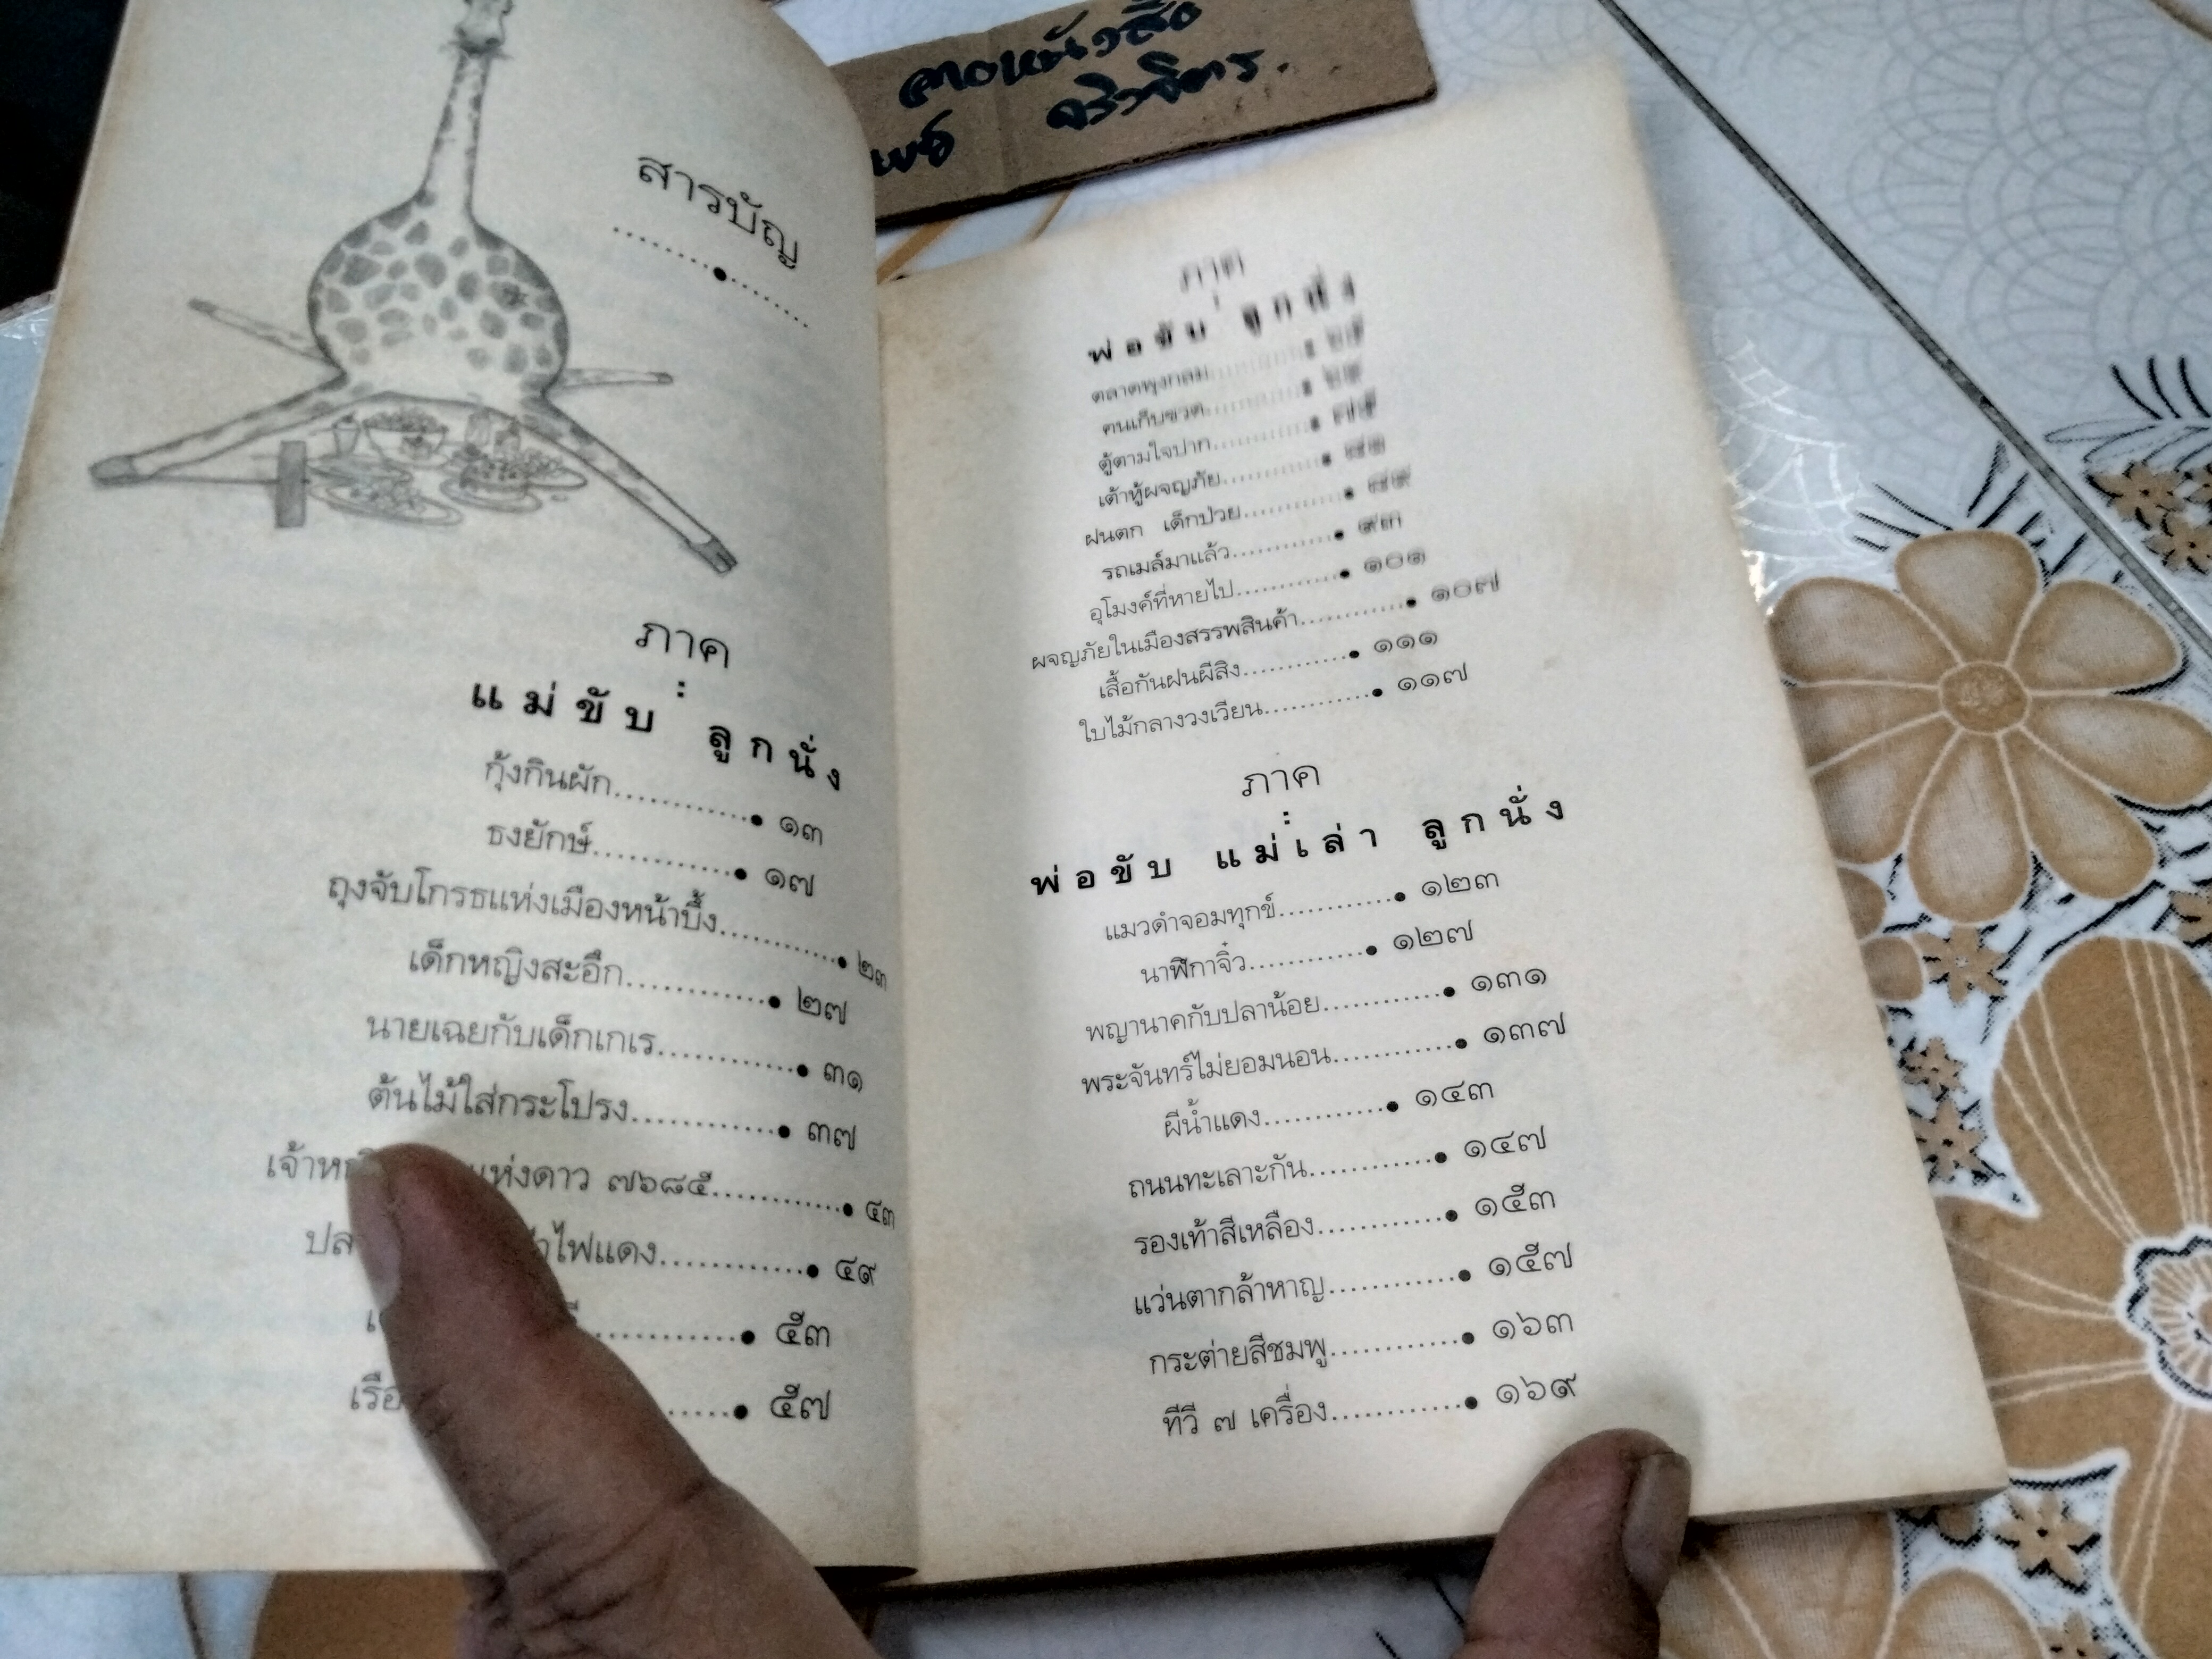 สารบัญ
ภาค
แม่ขับ : ลูกนั่ง
กุ้งกินผัก............● ๑๓
ธงยักษ์............● ๑๗
ถุงจับโกรธแห่งเมืองหน้าบึ้ง............● ๒๓
เด็กหญิงสะอึก............● ๒๗
นายเฉยกับเด็กเกเร............● ๓๑
ต้นไม้ใส่กระโปรง............● ๓๗
แห่งดาว ๗๖๘๕............● ๔๓
ไฟแดง............● ๔๙
............● ๕๓
............● ๕๗
ภาค
พ่อขับ : ลูกนั่ง
ตลาดพุงกลม............●
คนเก็บขวด............●
ตู้ตามใจปาก............● ๗๕
เต้าหู้ผจญภัย............● ๘๑
ฝนตก เด็กป่วย............● ๘๙
รถเมล์มาแล้ว............● ๙๓
อุโมงค์ที่หายไป............● ๑๐๑
ผจญภัยในเมืองสรรพสินค้า............● ๑๐๗
เสื้อกันฝนผีสิง............● ๑๑๑
ใบไม้กลางวงเวียน............● ๑๑๗
ภาค
พ่อขับ แม่เล่า : ลูกนั่ง
แมวดำจอมทุกข์............● ๑๒๓
นาฬิกาจิ๋ว............● ๑๒๗
พญานาคกับปลาน้อย............● ๑๓๑
พระจันทร์ไม่ยอมนอน............● ๑๓๗
ผีน้ำแดง............● ๑๔๓
ถนนทะเลาะกัน............● ๑๔๗
รองเท้าสีเหลือง............● ๑๕๓
แว่นตากล้าหาญ............● ๑๕๗
กระต่ายสีชมพู............● ๑๖๓
ทีวี ๗ เครื่อง............● ๑๖๙